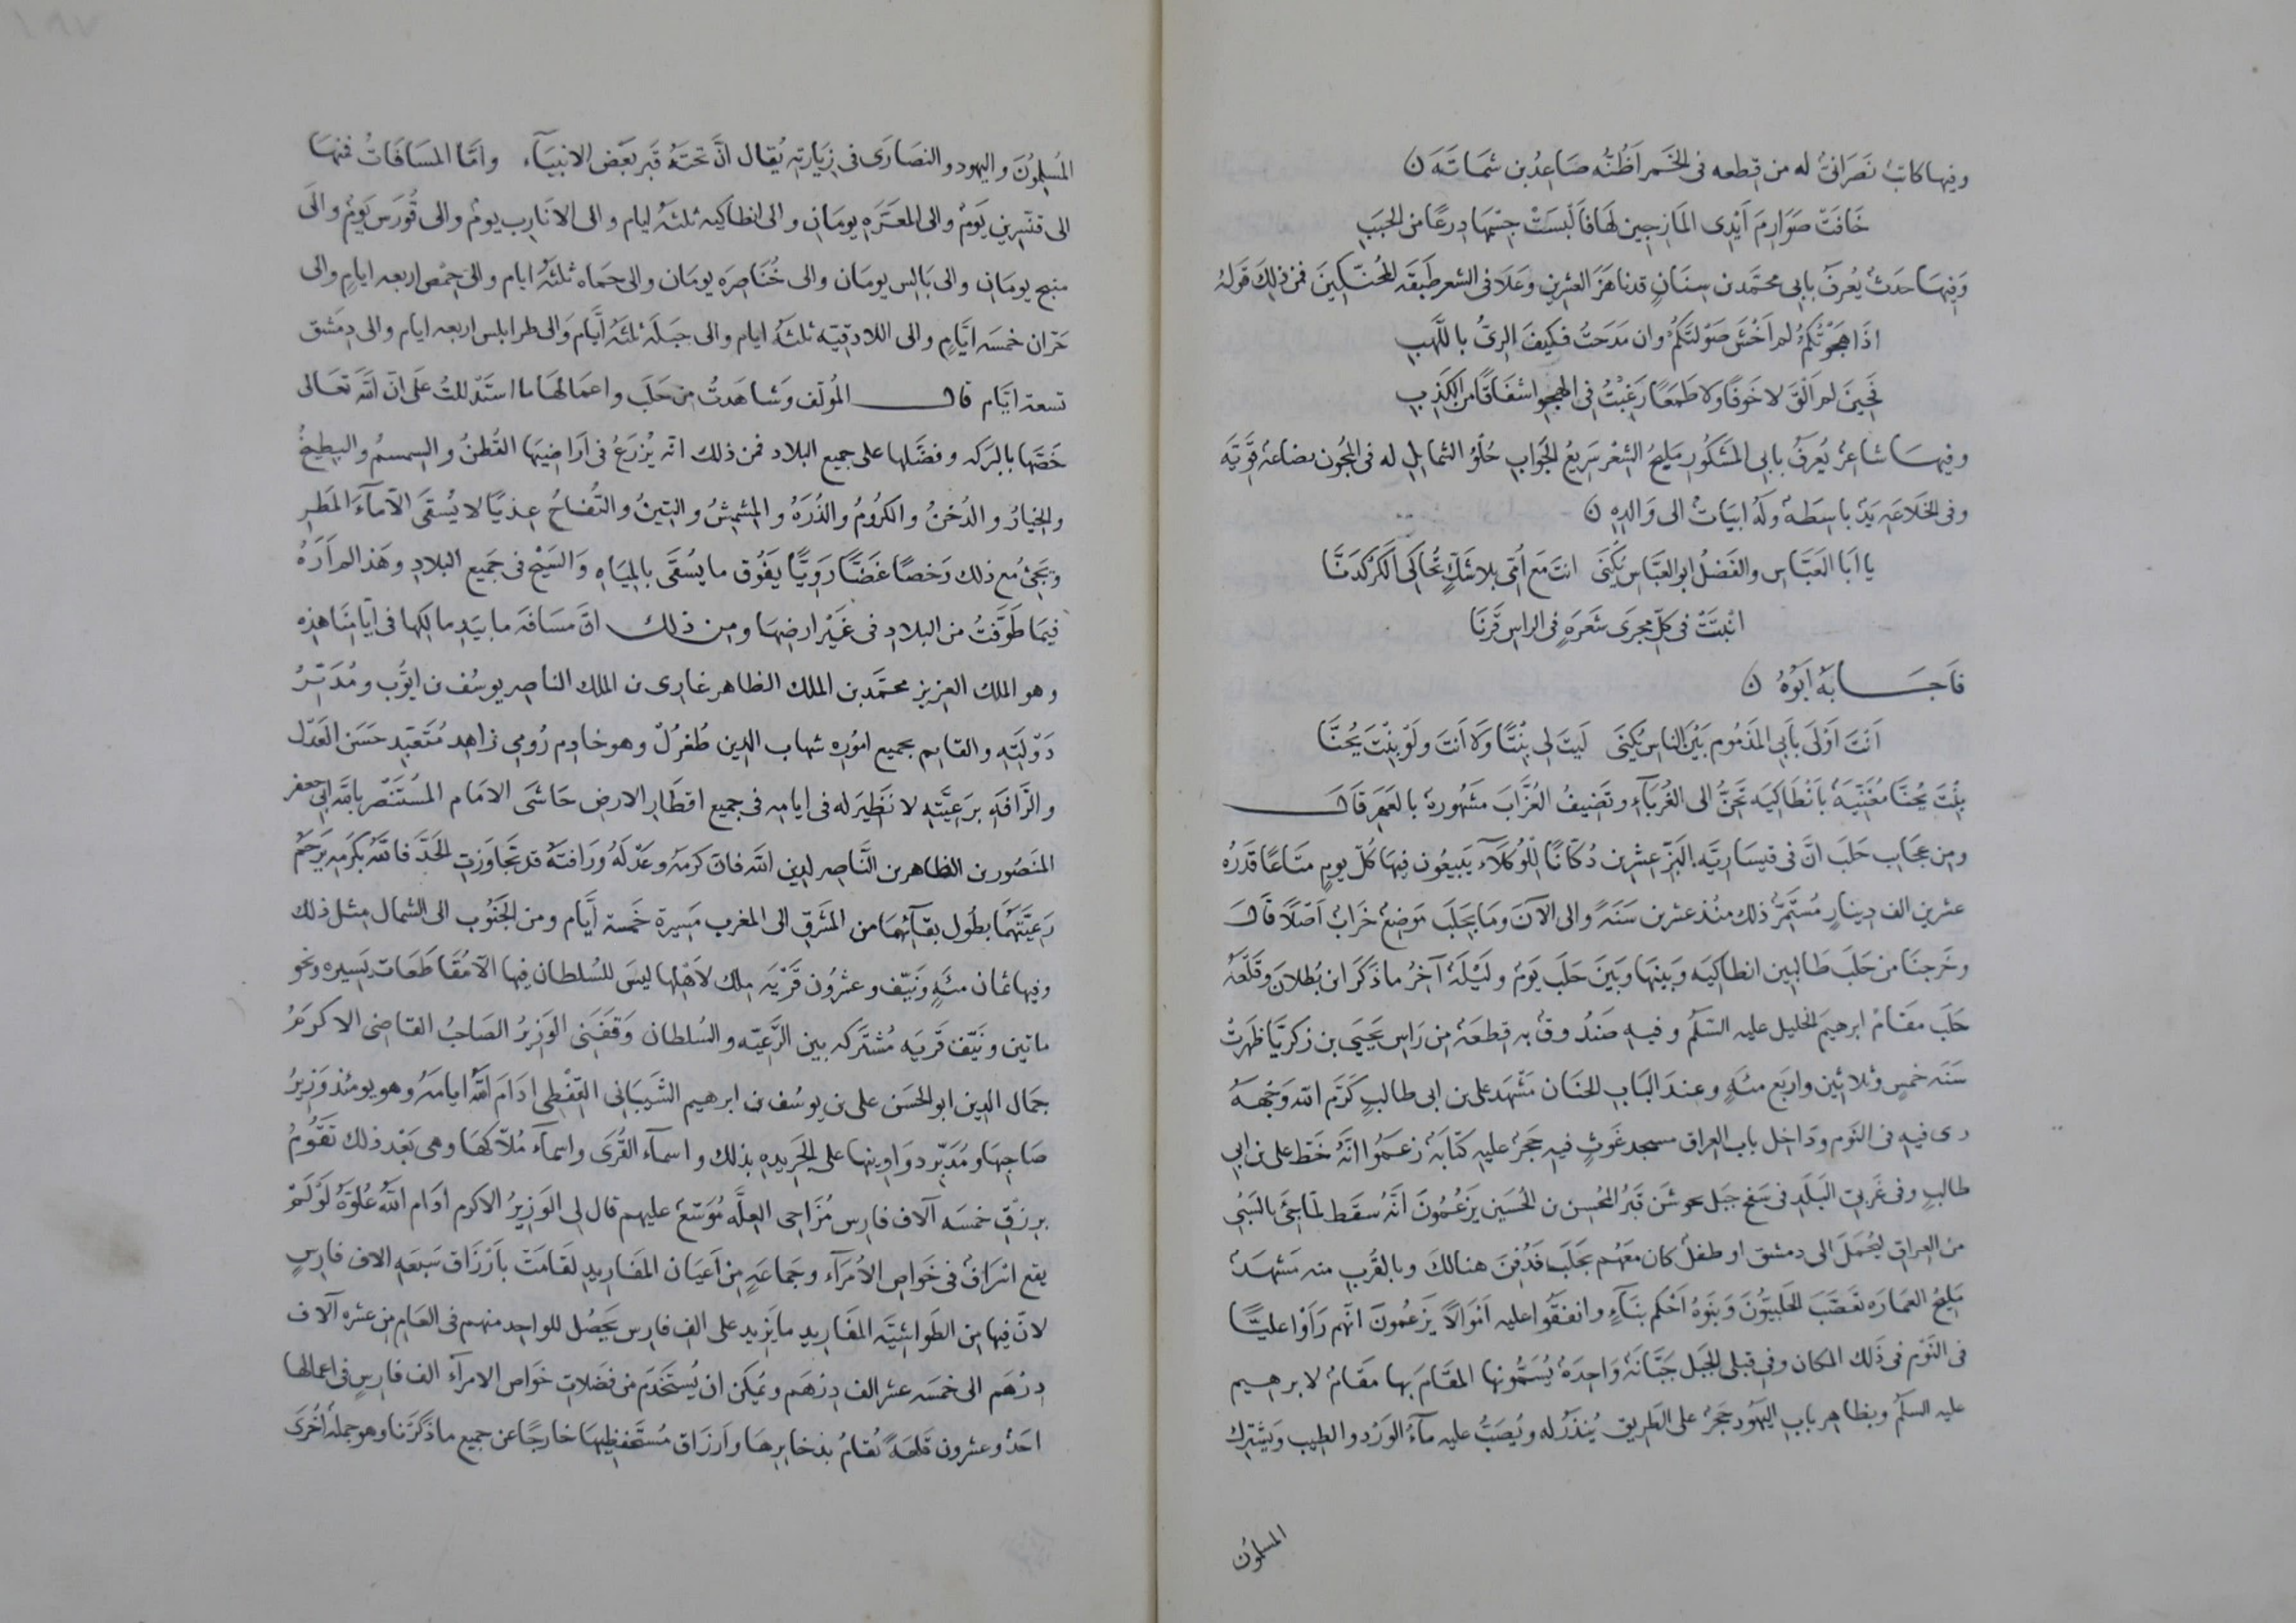 وفيها كاتبٌ نَصَرانىٌّ له من قطعه فى الخَمر اَظُنُّه صَاعِدُ بن شمَاتَهَ ن
خَافَتْ صَوَارِمَ اَيْدِى المَازِجِين لهَا فاَلْبَسَتْ جِسْمَهَا دِرعًا من الحَبَبِ
وَفِيهَا حَدثٌ يُعرفُ بابى محتَمد بن سِنَانٍ قد ناهَزَ العشرِين وعَلَا فى الشعر طَبقَه المُحنّكِينَ فمن ذلِكَ قولهُ
اذَا هَجَوْتُكُمُ لم اَخْشَ صَوْلتَكُمُ وان مَدَحتُ فكيفَ الرِىُّ باللَّهَبِ
فحِينَ لم اَلْقَ لا خَوفًا ولا طَمَعًا رَغِبْتُ فى الهجو اشفَاقًا من الكَذِبِ
وفيهَا شاعِرٌ يُعرَفُ بابى المَشكُور مَليحُ الشِعْر سَرِيعُ الجَوابِ حُلْوُ الشمايلِ له فى المجُون بضاعة قَوِيَّه
وفى الخَلَاعَهِ يَدٌ باسِطَهٌ ولَهُ ابيَاتٌ الى وَالدِهِ ن
يا اَبَا العَبَّاسِ والفَضْلُ ابو العَبَّاسِ يُكنَى انتَ مَع اُمِّى بلا شَكٍّ تُحاكى الكَرْكدَنَّا
انْبَتَتْ فى كلّ مجرى شَعرَهٍ فى الراسِ قَرْنَا
فاَجَابَهُ اَبُوْهُ ن
اَنتَ اَوْلَى باَبى المَذمُوم بَيْنَ الناسِ يُكنَى لَيتَ لى بِنْتًا وَلاَ اَنتَ ولَوْ بِنْتَ يُحنَّا
بِنْتَ يُحنَّا مُغَنِّيَهٌ بانْطاكيَه تَحِنُّ الى الغُرَبَآءِ وتَضِيفُ العُزَّابَ مَشهُورةٌ بالعَهر قَالَ
ومِن عجَايبِ حَلبَ انَّ فى قيسَارِيَّه البَزّ عشرِين دُكّانًا للْوُكلَآء يَبيعُون فيهَا كُلّ يومٍ متَاعًا قَدرُه
عشرين الف دِينَارٍ مُسْتَمِرٌّ ذلك منُذ عشرِين سَنَهً والى الآنَ وما بحَلبَ مَوضِعٌ خَرابٌ اَصْلًا قَالَ
وخَرجنَا من حَلبَ طَالبين انطاكِيَه وبَينهَا وبَينَ حَلبَ يَومٌ ولَيْلَهٌ آخِرُ ما ذكَرَ ابن بُطلَان وقَلعَهُ
حَلبَ مقَامُ ابرهيمَ الخليل عليه السّلَم وفيهِ صَندُوقٌ به قِطعَهٌ مِن رَاسِ يَحيَى بن زكريَّا ظهرتْ
سَنَه خمسٍ وثلاثين واربَع مئهٍ وعندَ البَاب الجنَان مَشْهَد على بن ابى طالبٍ كَرّم الله وَجْهَهُ
رى فيهِ فى النّوم ودَاخِل باب العِراق مسجد غَوثٍ فيهِ حَجَرٌ عليهِ كتَابَهٌ زعَمُوا انَّهُ خَطّ على بن ابى
طالبٍ وفى غَربىّ البَلَدِ فى سَفحِ جبَل جوشَن قَبرُ المُحسِن بن الحُسَين يَزعُمُونَ انّهُ سقَط لمّا جِئ بالسَبْى
من العِراق ليُحمَلَ الى دمشق او طفلٌ كان معَهُم بحَلبَ فَدُفِنَ هنالكَ وبالقُرب منه مَشهَدٌ
مَليحُ العمَارَه تعَصَّبَ الحَلبيُّونَ وبَنوهُ اَحْكم بنَآءٍ وانفقُوا عليه اَموَالًا يَزعُمُونَ انّهم رَاَوْا عليًّا
فى النَّوْم فى ذلك المكان وفى قبلى الجبَل جَبَّانَهٌ وَاحِدَهٌ يُسَمُّونهَا المقَام بها مقَامٌ لابرهيم
عليه السلَم وبظاهِر بابِ اليَهُود حَجرٌ على الطَريق يُنذَرُ له ويُصَبُّ عليه مآءُ الوَرْد والطيب ويَشتِرك
المسلمُون
المُسلِمُونَ واليهود والنصَارَى فى زِيَارَتِه يُقال انّ تحتَهُ قَبر بعَض الانبيَآء وامّا المسَافَاتُ فمنهَا
الى قنّسرِين يَومٌ والى المعَرّهِ يومَانِ والى انطاكيه ثلثهُ ايام والى الاثَارب يومٌ والى قُورَس يَومٌ والى
منبج يومَانِ والى بَالِس يومَان والى خُنَاصِرَه يومَان والى حمَاه ثلثَهُ ايام والى حِمْص اربعه ايامٍ والى
حَرّان خمسَه ايَّامٍ والى اللاذقيّه ثلثهُ ايام والى جبَلَه ثلثهُ اَيَّام وَالى طرابلس اربعه ايام والى دِمَشق
تسعة ايَّام قال المُولّف وشَاهَدتُ مِن حَلبَ واعمَالهَا ما استَدْللتُ علَى انّ الله تعَالى
خَصّهَا بالبَركه وفضّلهَا على جميع البلاد فمن ذلك انّه يُزرَعُ فى اَرَاضِيهَا القُطنُ والسِمسِمُ والبِطيخُ
والخِيارُ والدُخنُ والكرُومُ والذُرَهُ والمِشمِشُ والتينُ والتُّفاحُ عِذيًا لا يُسقَى الّا مآءَ المَطرِ
ويَجىُ مع ذلك رَخصًا غَضًّا رَوِيًّا يَفُوق ما يُسْقَى بالميَاهِ والسَيْح فى جَميع البلادِ وهَذا لم اَرَهُ
فيمَا طَوّفتُ من البلادِ فى غَيْر ارضِهَا ومِن ذلك انّ مسَافَه ما بيَدِ مالكِهَا فى اَيّامِنَا هذِه
وهو الملك العزيز محتَمد بن الملك الظاهر غازى بن الملك الناصِر يوسُف بن ايّوب ومُدَبِّرُ
دَوْلَتِهِ والقايم بجميع امُوره شهاب الدين طُغرُلْ وهو خادِم رُومِى زاهِد مُتَعَبّد حَسَن العَدْل
والرَّافَهِ برَعِيّتهِ لا نَظِيرَ له فى اَيامِه فى جميع اقطَارِ الارضِ حَاشَى الامَام المُستَنصر بالله ابى جعفر
المَنصُور بن الظاهر بن النَّاصِر لدين الله فانّ كَرمَهُ وعَدْلَهُ ورَافتَهُ قد تجَاوزتِ الحَدَّ فالله بكرَمِه يَرحَمُ
رَعِيَّتَهُمَا بطُول بقَآئِهمَا من المَشرقِ الى المَغرب مَسِيرة خَمسة اَيَّام ومن الجَنُوب الى الشمال مِثل ذلك
وفيها ثمان مئَهٍ ونَيّف وعشرُون قَرْيَه مِلك لاَهْلِها ليسَ للسُلطان فيها الّا مُقَاطَعَات يَسِيره ونحو
ماتين ونَيّف قَريَه مُشتَركه بين الرَّعيّه والسُلطان وَقفَنى الوَزيرُ الصَاحِبُ القاضى الاكرَمُ
جمَال الدين ابو الحسَن على بن يوسُف بن ابرهيم الشَيبَانى القِفْطى ادَامَ اللهُ ايامَهُ وهو يومئذ وَزِيرُ
صَاحِبهَا ومُدَبّر دوَاوِينهَا على الجَريدهِ بذلك واسمآء القُرَى واسماء مُلّاكهَا وهى بَعْد ذلك تَقُومُ
برزقِ خمسَه آلاف فارِس مُزَاحِى العِلَّه مُوَسّعٌ عليهم قال لى الوَزيرُ الاكرم ادَام اللهُ عُلُوّهُ لَوْ لَمْ
يقع اسرَافٌ فى خَواصِ الاُمَرَآء وجمَاعَهٍ مِن اَعيَان المفَارِيدِ لقَامَتْ باَرْزَاق سَبعَه الاف فارِسٍ
لانّ فيهَا مِن الطَواشيّه المفَاريد ما يَزيد على الف فارِس يَحصُل للواحِد منهم فى العَامِ مِن عشره آلاف
دِرْهَم الى خمسَه عشر الف دِرْهَم ويُمكن ان يُستَخدَم من فَضلاتِ خَواص الامرآء الف فارِسٍ فى اعمالها
احَدٌ وعشرون قَلعَهً تُقامُ بذخايرِهَا واَرزَاق مُستَحفظيهَا خارجًا عن جميع ما ذكَرْنا وهو جملةٌ اُخرَى